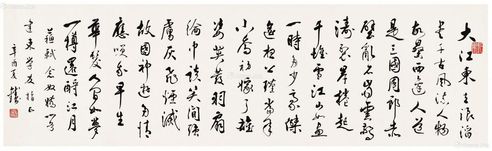 大江東去浪淘
盡千古風流人物
故壘西邊人道
是三國周郎赤
壁亂石崩雲驚
濤裂岸捲起
千堆雪江山如畫
一時多少豪傑
遙想公瑾當年
小喬初嫁了雄
姿英發羽扇
綸巾談笑間強
虜灰飛煙滅
故國神遊多情
應笑我早生
華髮人間如夢
一樽還酹江月
蘇軾念奴嬌
建東學友指正
辛酉夏